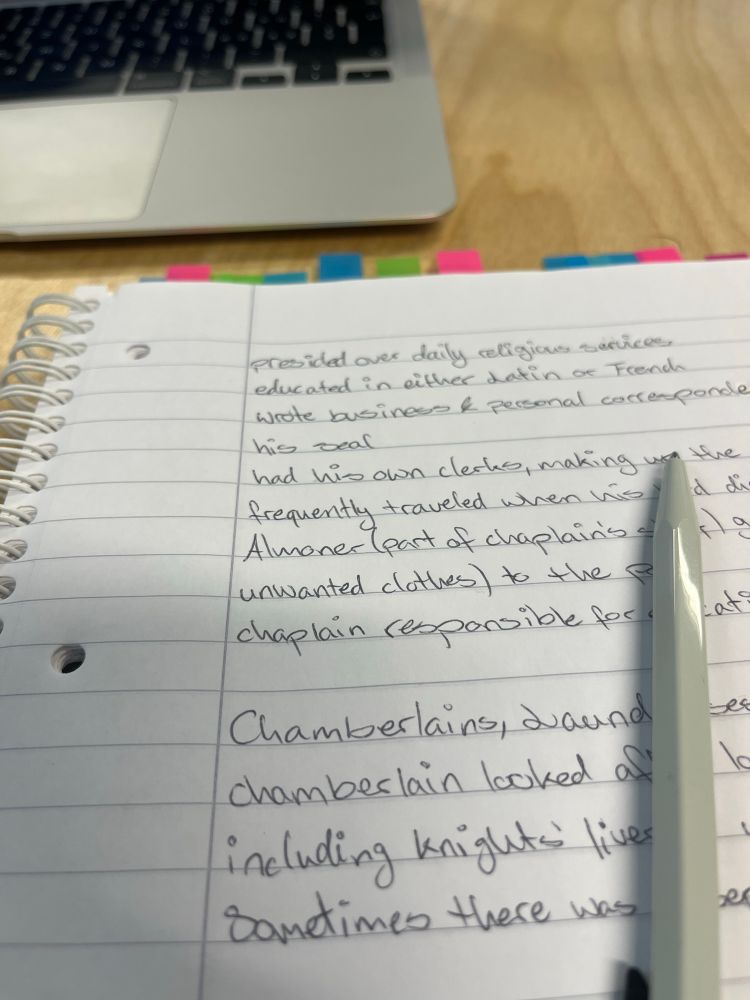 presided over daily religious services
educated in either Latin or French
wrote business & personal
his seal
had his own clerks, making up the
frequently traveled when his
Almoner (part of chaplain's
unwanted clothes) to the
chaplain responsible for
Chamberlains,
chamberlain looked
including knights'
Sometimes there was